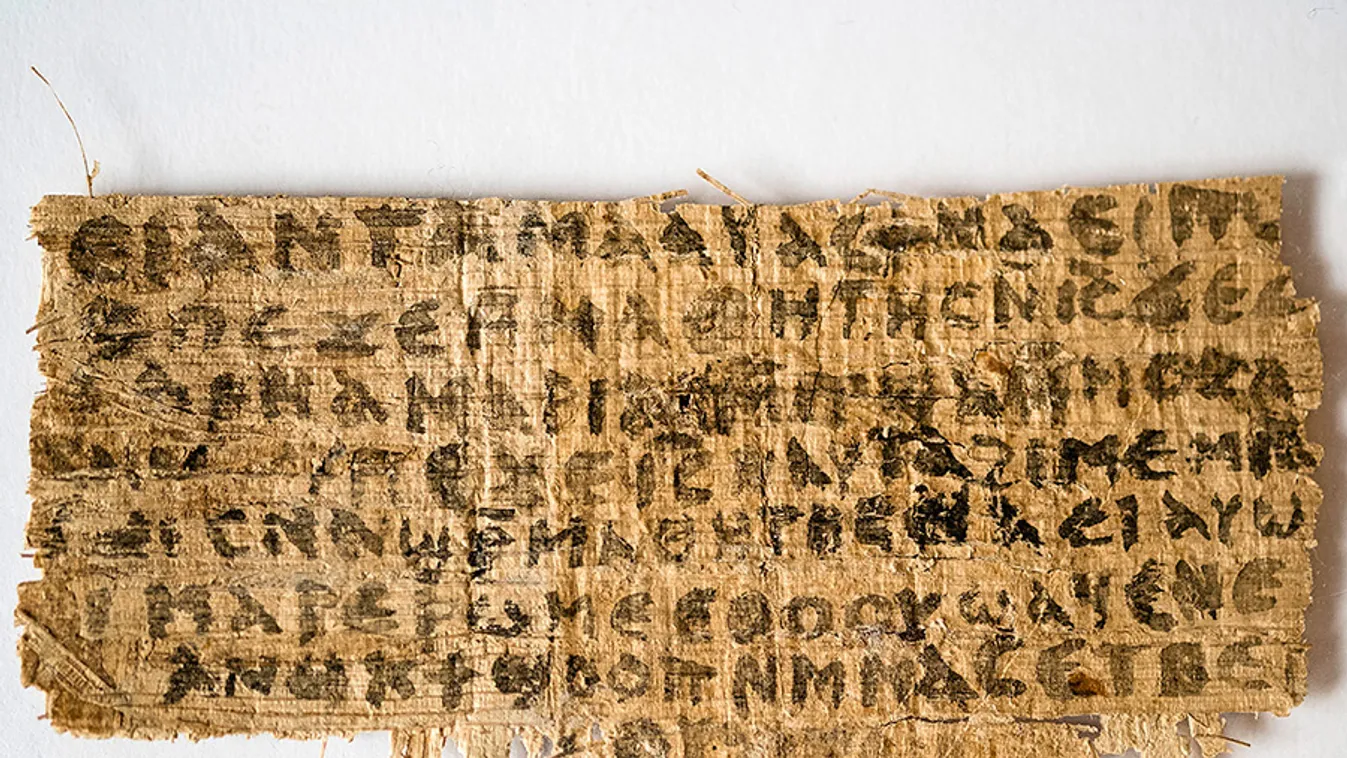 ⲉⲓⲁⲛⲧⲁⲙⲁⲁⲩⲁⲥϯⲛⲁⲉⲓⲡⲱ
ⲥⲡⲉϫⲉⲙⲙⲁⲑⲏⲧⲏⲥⲛⲓ̅ⲥ̅ϫⲉⲥ
ⲁⲣⲛⲁⲙⲁⲣⲓⲁⲙⲙ̅ⲡϣⲁⲙ̅ⲙⲟⲥⲁ
ⲡⲉϫⲉⲓ̅ⲥ̅ⲛⲁⲩⲧⲁϩⲓⲙⲉⲙⲛ̅
ⲥⲛⲁϣⲣ̅ⲙⲁⲑⲏⲧⲏⲥⲛⲁⲉⲓⲁⲩⲱ
ⲓⲙⲁⲣⲉⲣⲱⲙⲉⲉⲑⲟⲟⲩϣⲁϥⲉⲛⲉ
ⲁⲛⲟⲕϯϣⲟⲟⲡⲛⲙ̅ⲙⲁⲥⲉⲧⲃⲉ